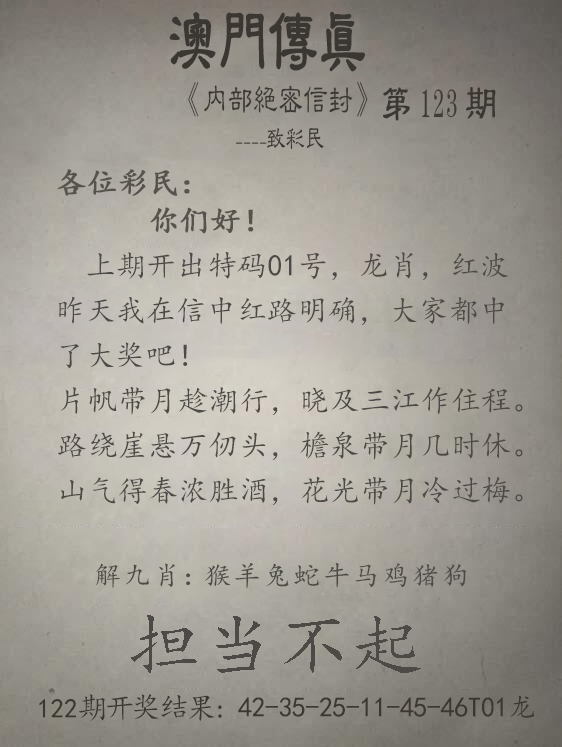 澳門傳眞
《内部絕密信封》第123期
----致彩民
各位彩民：
你们好！
上期开出特码01号，龙肖，红波
昨天我在信中红路明确，大家都中
了大奖吧！
片帆带月趁潮行，晓及三江作住程。
路绕崖悬万仞头，檐泉带月几时休。
山气得春浓胜酒，花光带月冷过梅。
解九肖：猴羊兔蛇牛马鸡猪狗
担当不起
122期开奖结果：42-35-25-11-45-46T01龙